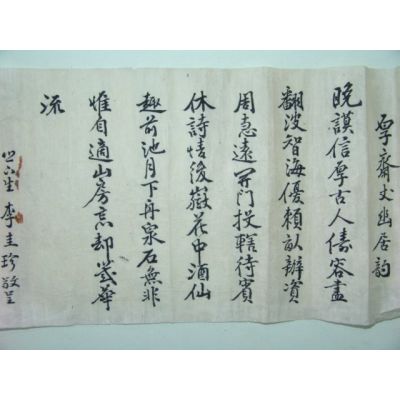 厚齋丈幽居韵
晩謨信厚古人儔容盡
翻波智海優賴畝辦資
周惠遠開門投轄待賓
休詩情後嶽花中酒仙
趣前池月下舟泉石無非
惟自適山房忘却歲華
流
生 李圭珍敬呈